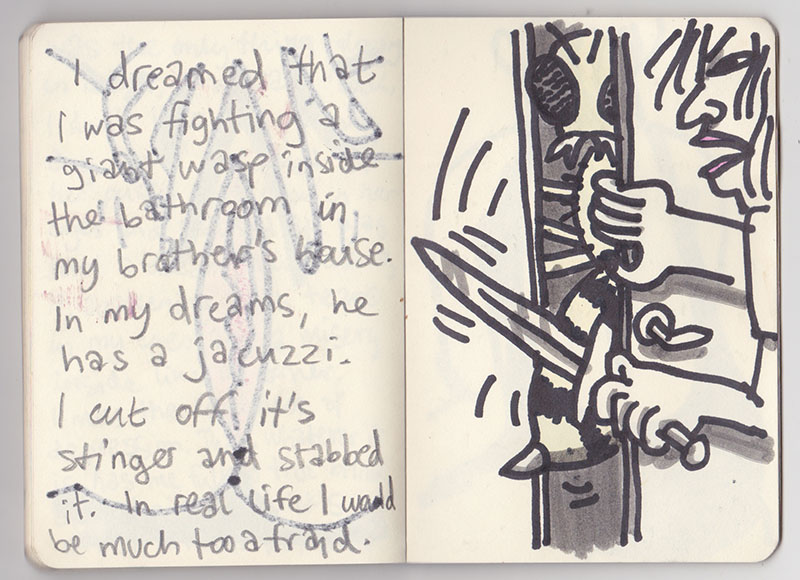 I dreamed that
I was fighting a
giant wasp inside
the bathroom in
my brother's house.
In my dreams, he
has a jacuzzi.
I cut off it's
stinger and stabbed
it. In real life I would
be much too afraid.